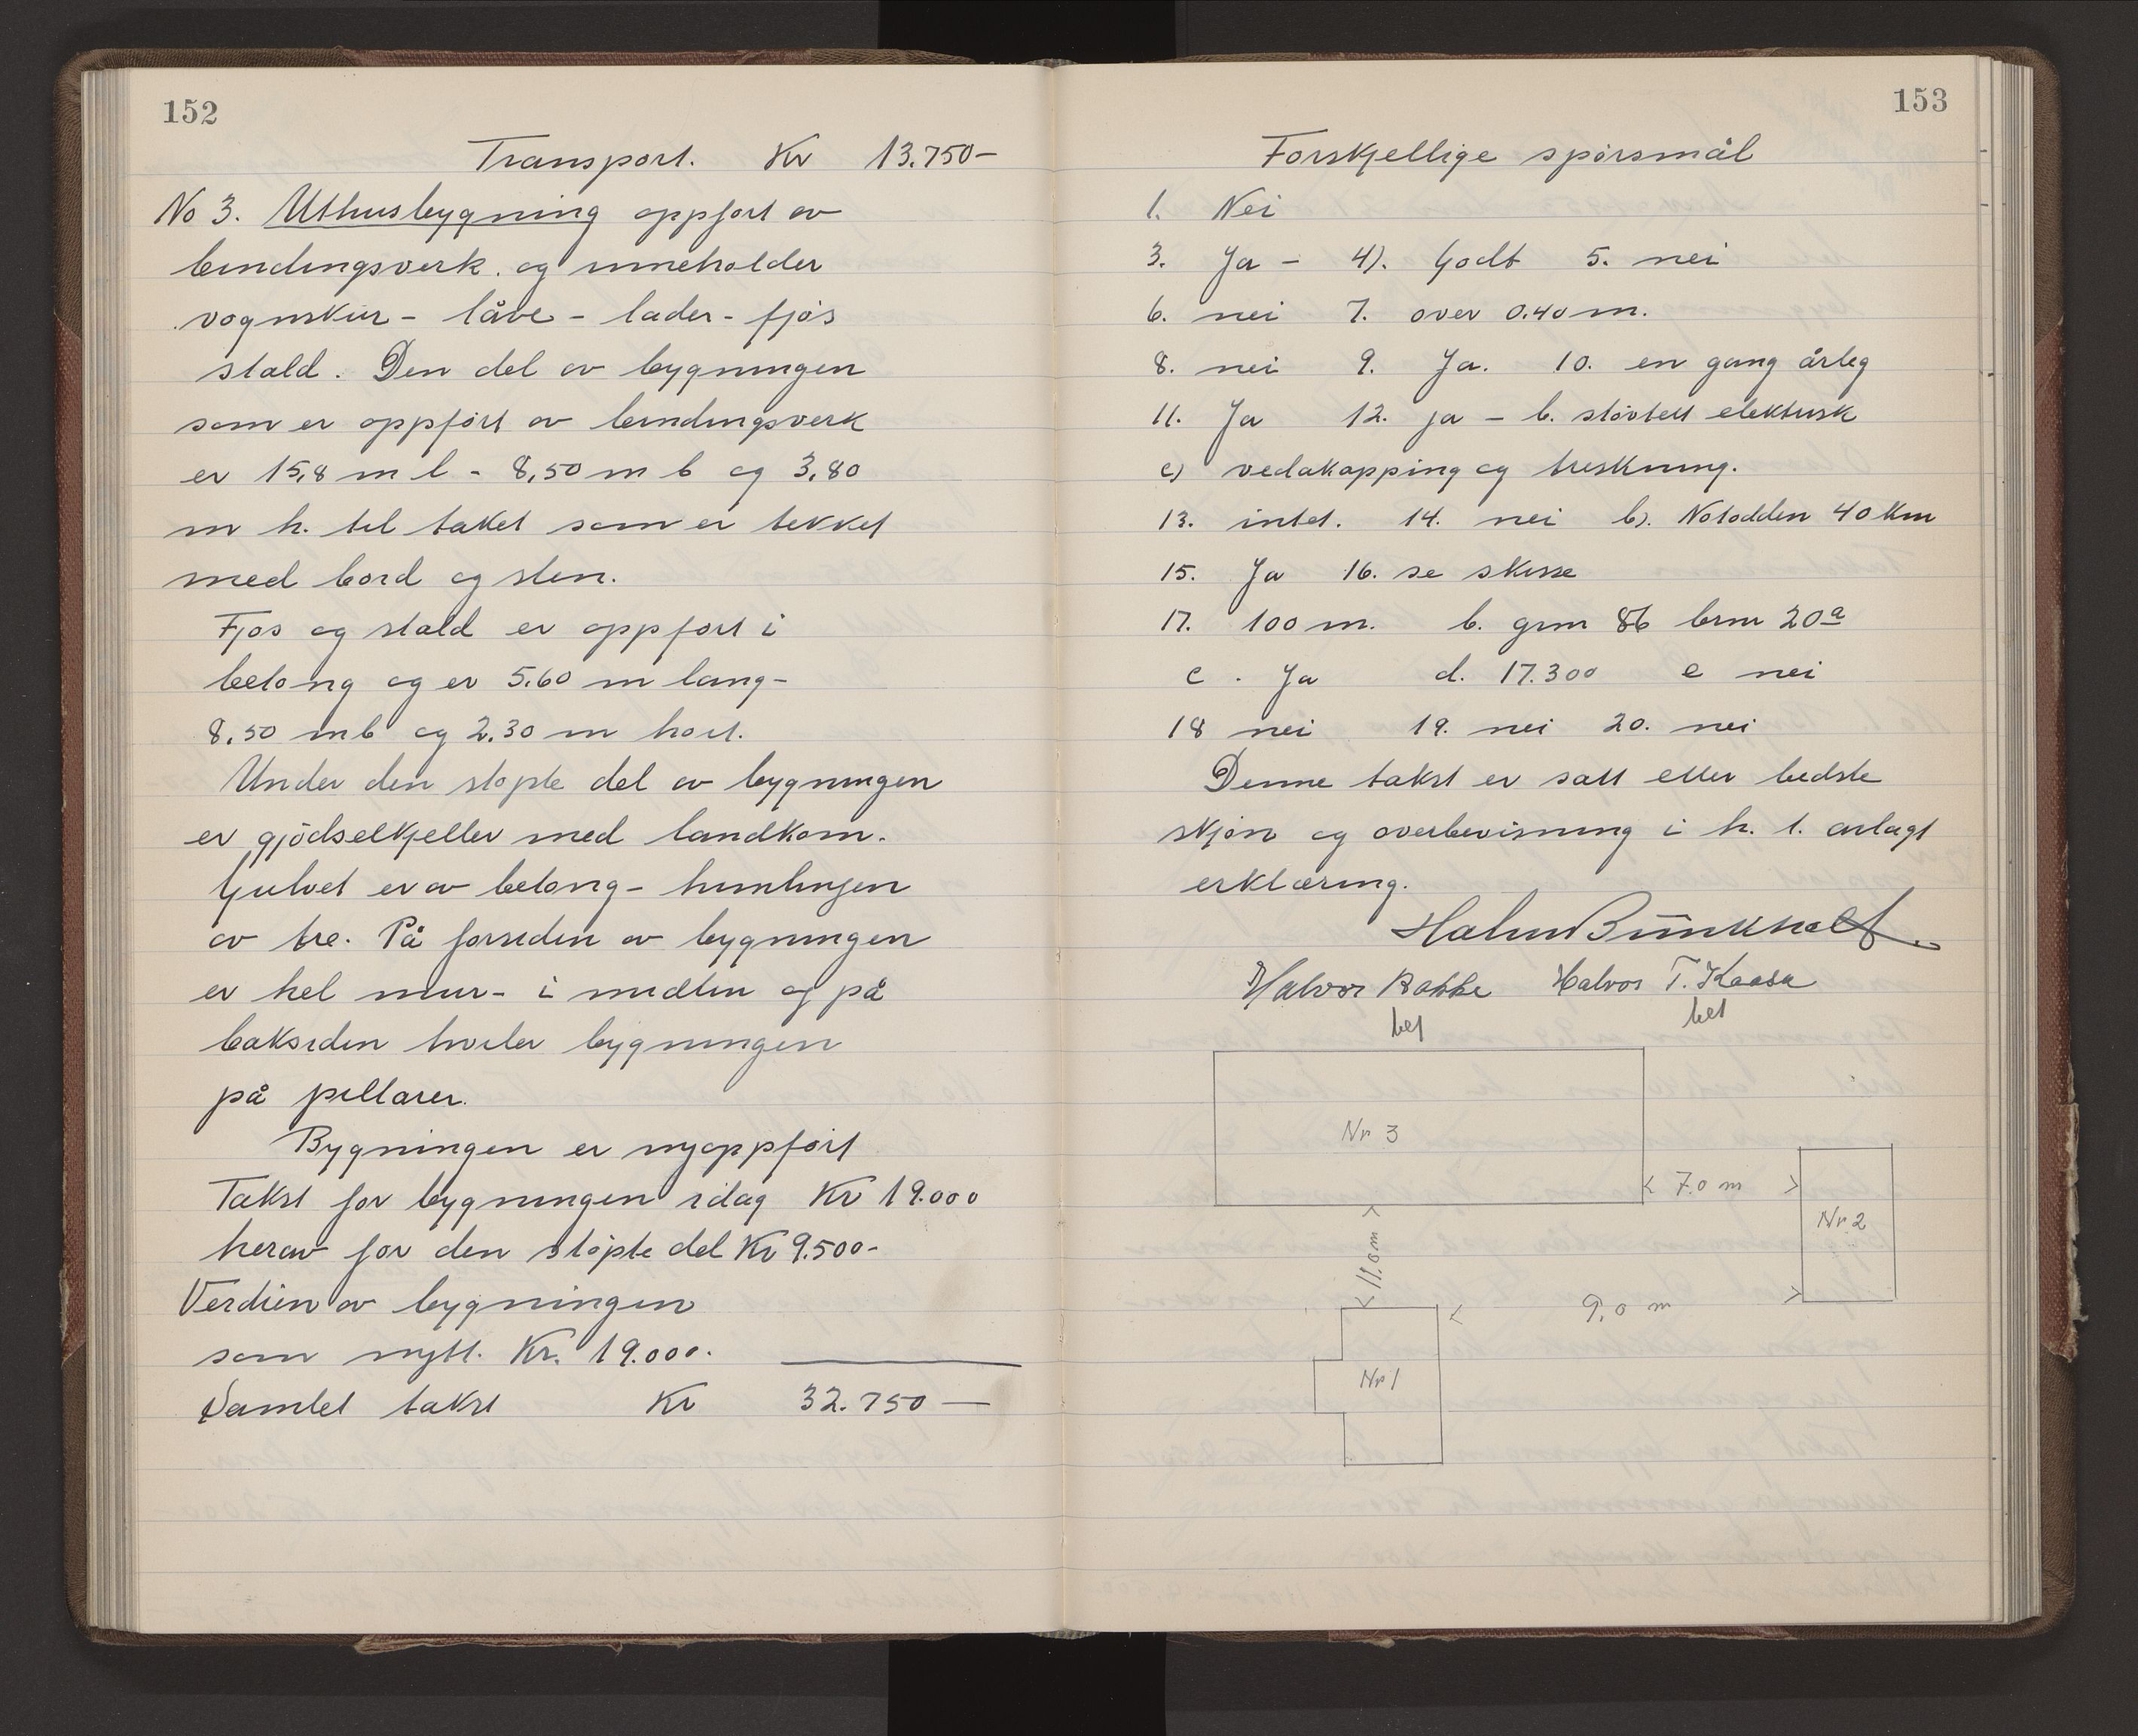 152
Transport. Kr 13.750-
No 3. Uthusbygning oppført av
bindingsverk. og inneholder
vognskur - låve - lader - fjøs
stald. Den del av bygningen
som er oppført av bindingsverk
er 15,8 m l - 8,50 m b og 3,80
m h. til taket som er tekket
med bord og sten.
Fjøs og stald er oppført i
betong og er 5.60 m lang -
8.50 m b og 2.30 m høit.
Under den støpte del av bygningen
er gjødselkjeller med landkom.
Gulvet er av betong - himlingen
av tre. På forsiden av bygningen
er hel mur - i midten og på
baksiden hviler bygningen
på pillarer.
Bygningen er nyoppført
Takst for bygningen idag Kr 19.000
herav for den støpte del Kr 9.500-
Verdien av bygningen
som nytt. Kr. 19.000.
Samlet takst Kr 32.750 —
153
Forskjellige spørsmål
1. Nei
3. Ja - 4). Godt 5. nei
6. nei 7. over 0.40 m.
8. nei 9. Ja. 10. en gang årleg
11. Ja 12. ja - b. støvtett elektrisk
c) vedakapping og treskning.
13. intet. 14. nei b). Notodden 40 km
15. Ja 16. se skisse
17. 100 m. b. grnr 86 brnr 20a
c. Ja d. 17.300 e nei
18 nei 19. nei 20. nei
Denne takst er satt etter bedste
skjøn og overbevisning i h. t. avlagt
erklæring.
Halvor Bakke Halvor T. Kaasa
Nr 3
7.0 m
Nr 2
11.0 m
9,0 m
Nr 1